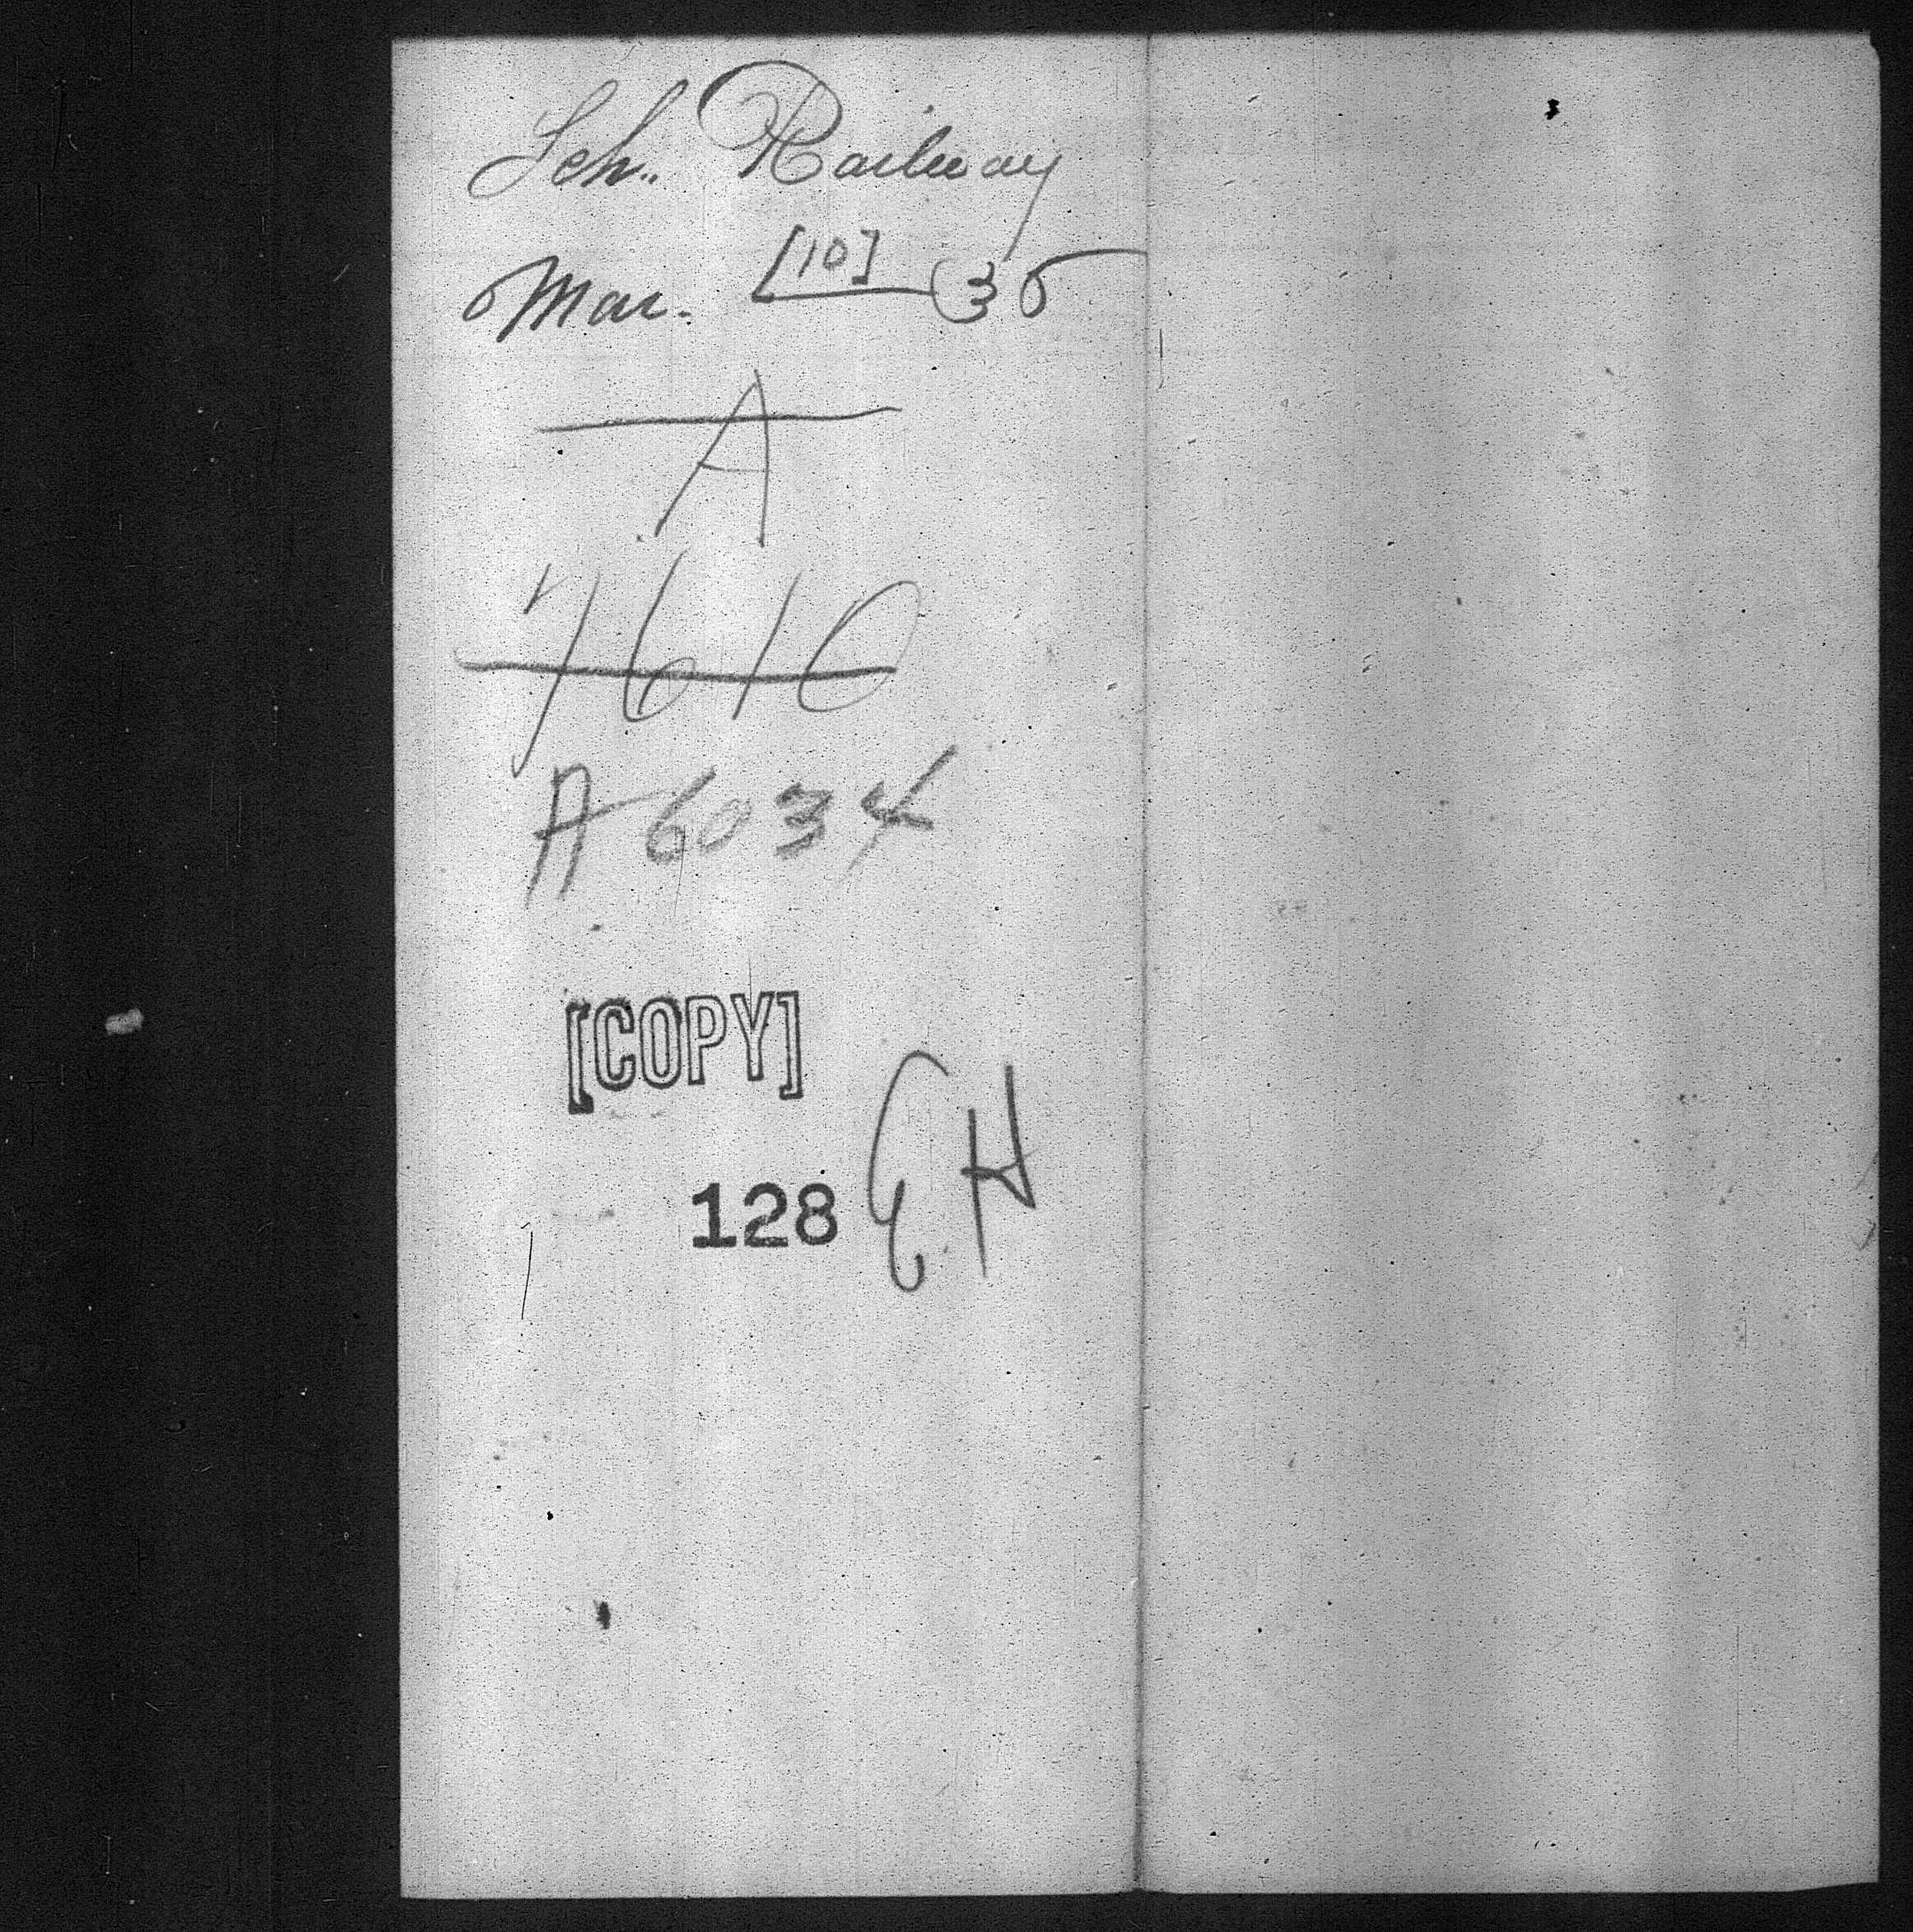 Sch. Railway
Mar. [10] 35
A
7610
A 6034
[COPY]
128 E.H